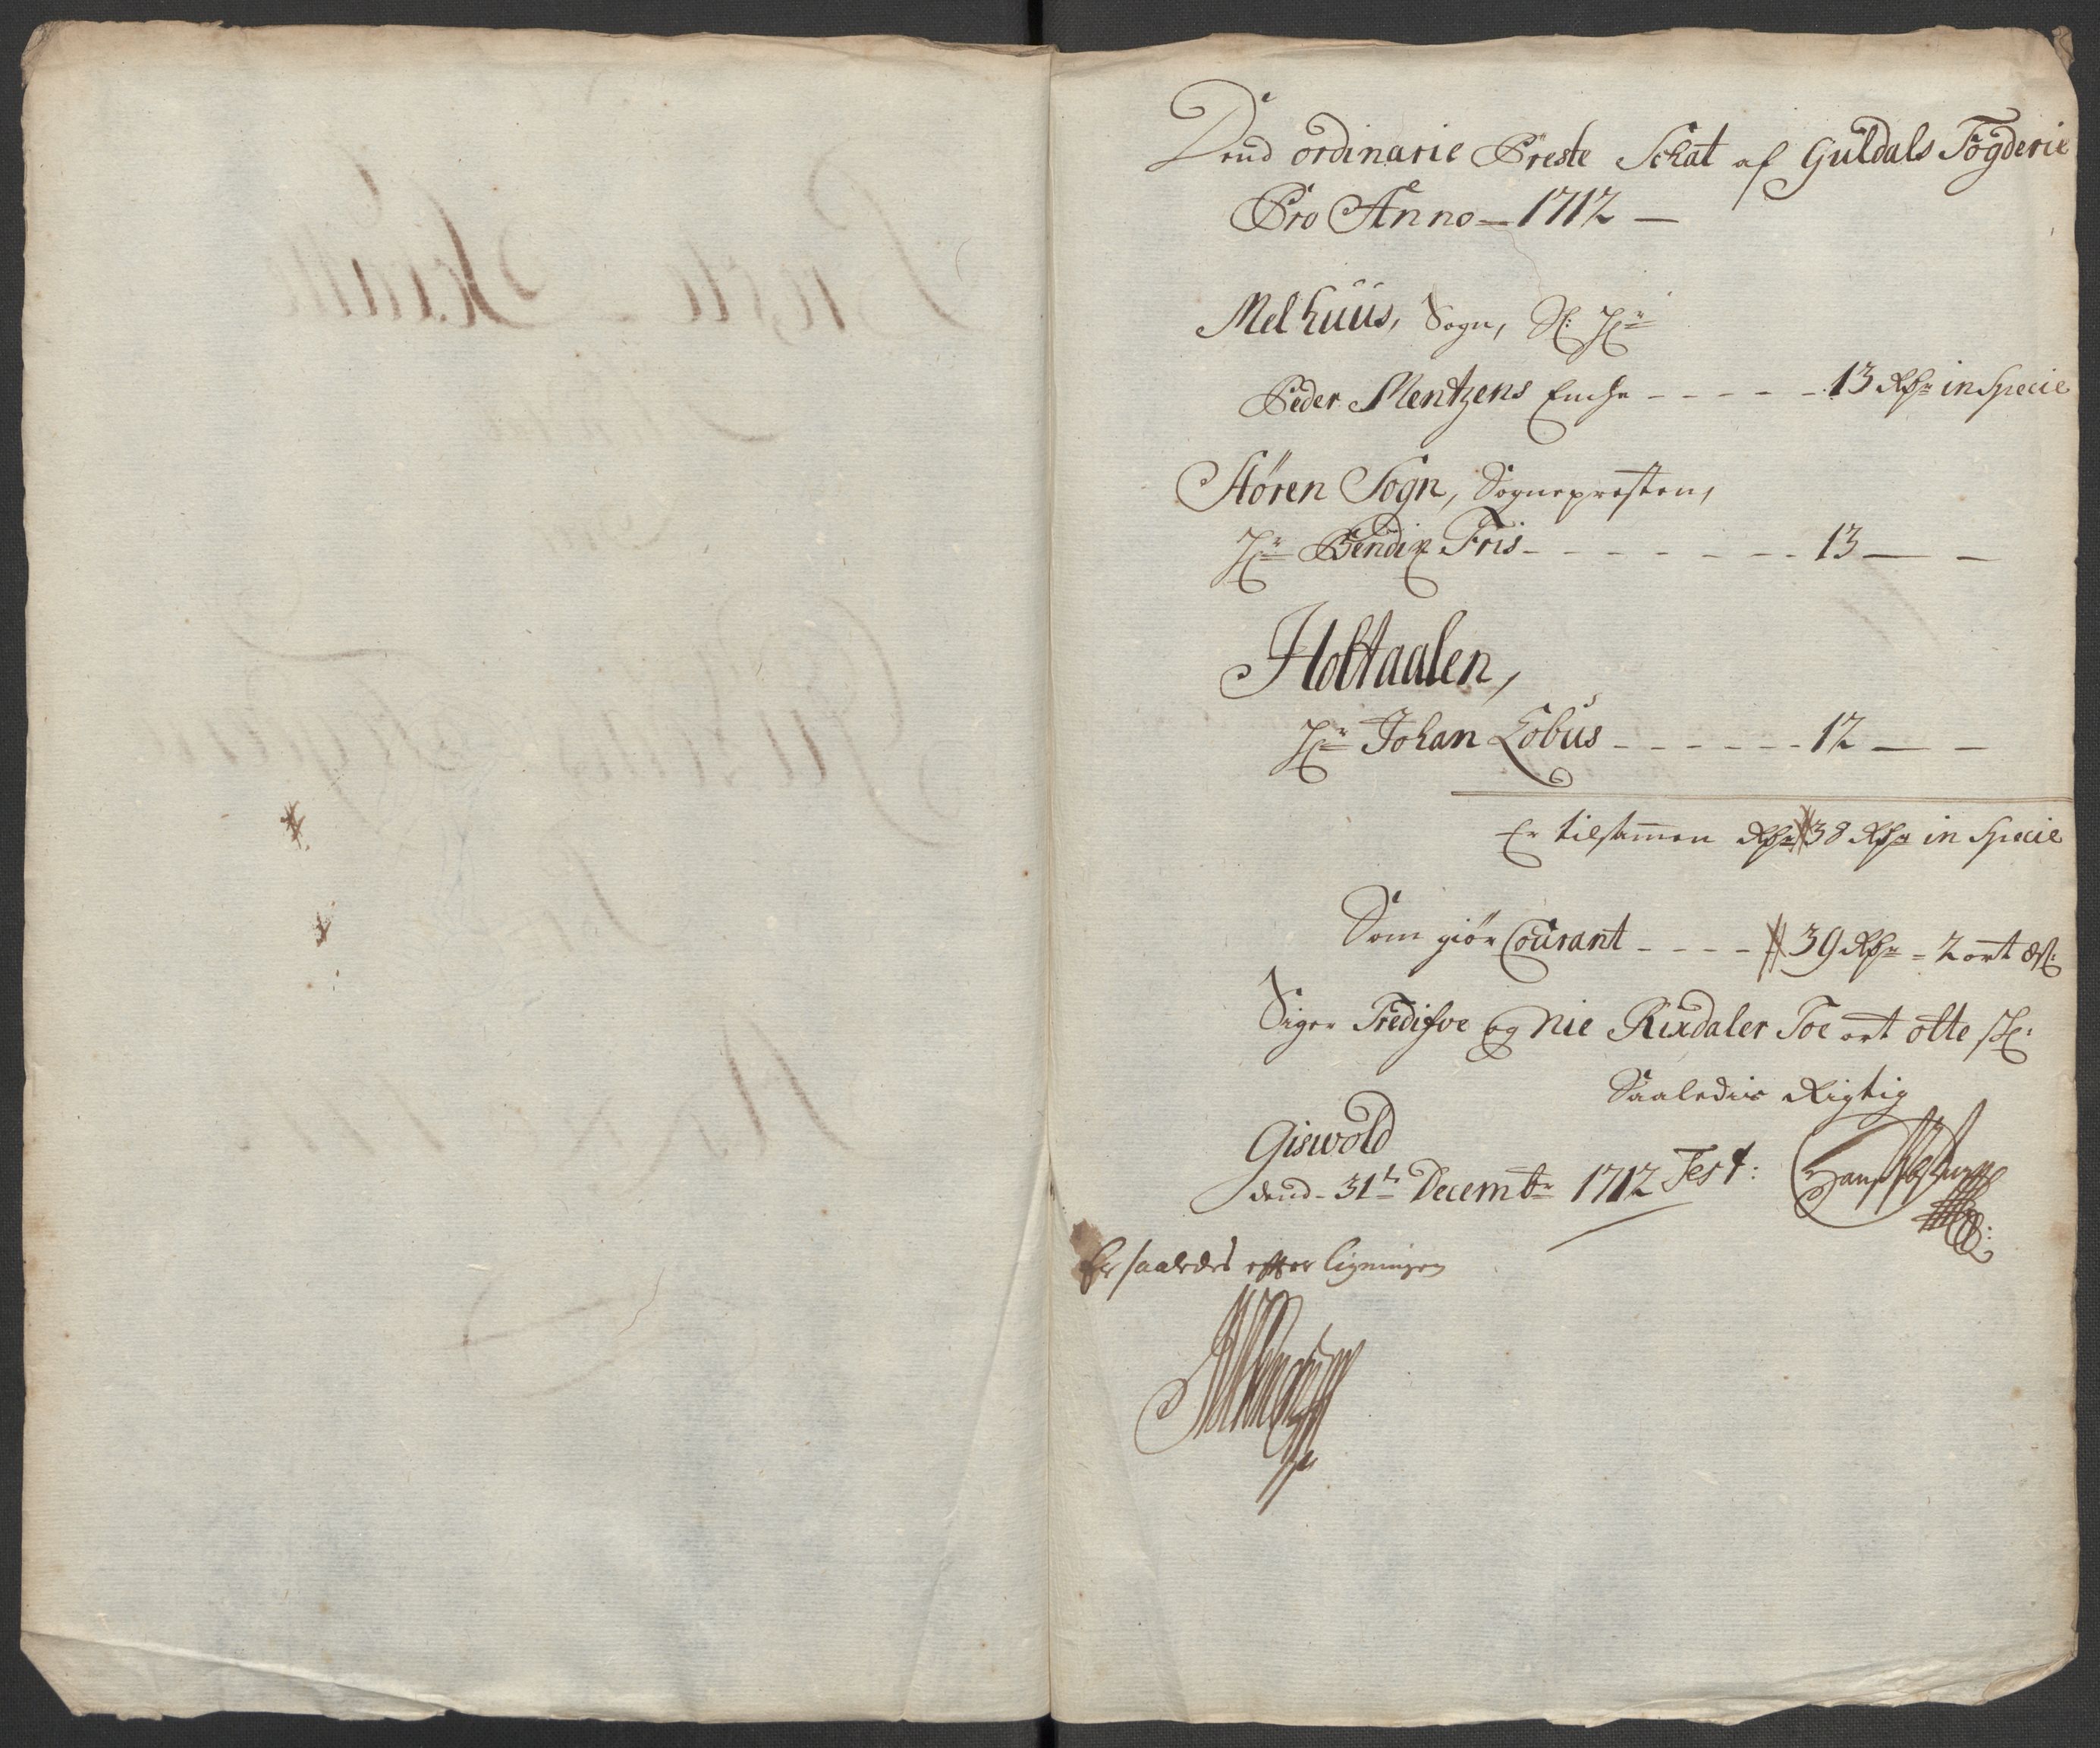 Dend ordinarie Preste Schat af Guldals Fogderie
Pro Anno 1712
Melhuus, Sogn, Sl: Hr
Peder Mentzens Enche - - - - - 13 Rdr in Specie
Støren Sogn, Sognepresten,
Hr Bendix Fris - - - - - - - 13 — —
Holtaalen,
Hr Johan Lobus - - - - - - 12 — —
Er tilsammen Rdr 38 Rdr in Specie
Som giør Courant - - - - 39 Rdr = 2 ort 8 s:
Siger Tredifve og Nie Rixdaler Toe ort otte s:
Saaledis Rigtig
Giswold
dend 31te Decembr 1712 Test:
Er saaledes efter ligningen